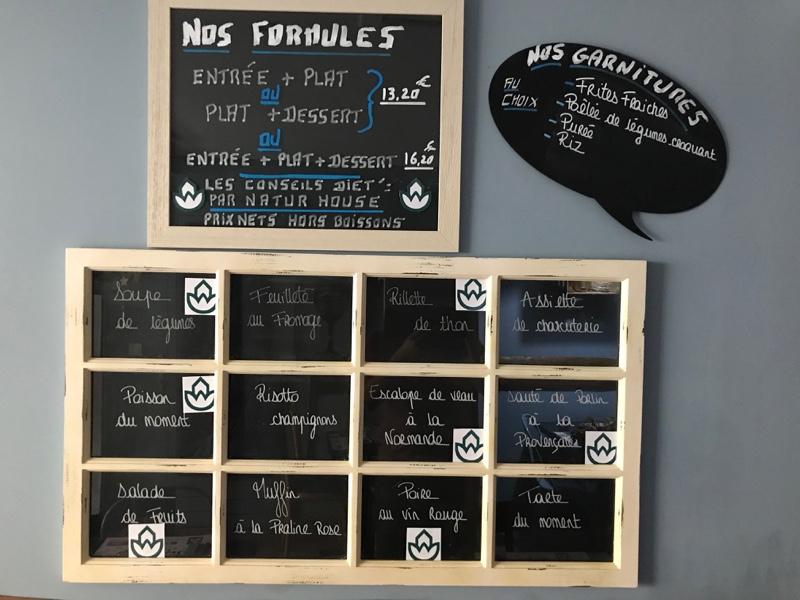 NOS FORMULES
ENTRÉE + PLAT
OU
13,20 €
PLAT + DESSERT
OU
ENTRÉE + PLAT + DESSERT 16,20 €
LES CONSEILS DIET :
PAR NATUR HOUSE
PRIX NETS HORS BOISSONS
NOS GARNITURES
AU
CHOIX
- Frites Fraiches
- Poêlée de légumes croquant
- Pureé
- Riz
Soupe
de légumes
Feuilleté
au Fromage
Rillette
de thon
Assiette
de charcuterie
Poisson
du moment
Risotto
champignons
Escalope de veau
à la
Normande
Sauté de
à la
Provençale
Salade
de Fruits
Muffin
à la Praline Rose
Poire
au vin Rouge
Tarte
du moment